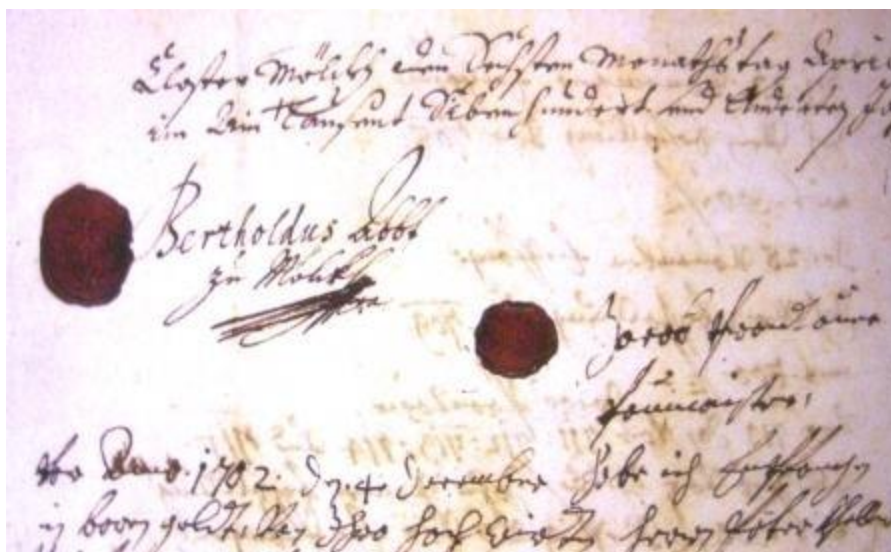 Closter Mölkh den Sechsten Monathstag Apri
im Ain Tausent Siben hundert und Anderten
Bertholdus Abbt
zu Mölkh
Jacob Prandtauer
Paumaister
Anno 1702 den 4 december habe ich Empfangen
in born geldt von Ihro hoch herrn